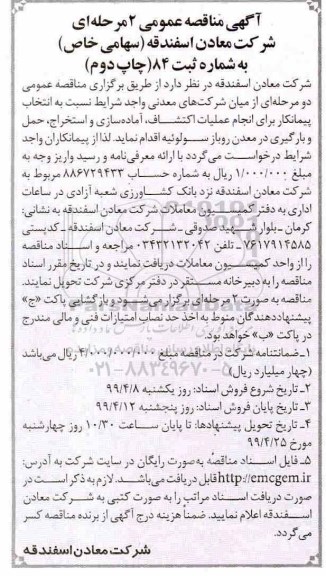 آگهی مناقصه عمومی ۲ مرحله‌ای
شرکت معادن اسفندقه (سهامی خاص)
به شماره ثبت ۸۴ (چاپ دوم)
شرکت معادن اسفندقه در نظر دارد از طریق برگزاری مناقصه عمومی
دو مرحله‌ای از میان شرکت‌های معدنی واجد شرایط نسبت به انتخاب
پیمانکار برای انجام عملیات اکتشاف، آماده‌سازی و استخراج، حمل
و بارگیری در معدن روباز سولوئیه اقدام نماید. لذا از پیمانکاران واجد
شرایط درخواست می‌گردد با ارائه معرفی‌نامه و رسید واریز وجه به
مبلغ ۱/۰۰۰/۰۰۰ ریال به شماره حساب ۸۸۶۷۲۹۴۳۳ مربوط به
شرکت معادن اسفندقه نزد بانک کشاورزی شعبه آزادی در ساعات
اداری به دفتر کمیسیون معاملات شرکت معادن اسفندقه به نشانی:
کرمان ـ بلوار شهید صدوقی ـ شرکت معادن اسفندقه ـ کدپستی
۷۶۱۷۹۱۴۵۸۵ ـ تلفن ۰۳۴۳۲۱۳۲۰۴۲ مراجعه و اسناد مناقصه
را از واحد کمیسیون معاملات دریافت نمایند و در تاریخ مقرر اسناد
مناقصه را به دبیرخانه مستقر در دفتر مرکزی شرکت تحویل نمایند.
مناقصه به صورت ۲ مرحله‌ای برگزار می‌شود و بازگشایی پاکت «ج»
پیشنهاددهندگان منوط به اخذ حد نصاب امتیازات فنی و مالی مندرج
در پاکت «ب» خواهد بود.
۱ـ ضمانتنامه شرکت در مناقصه مبلغ ۴/۰۰۰/۰۰۰/۰۰۰ ریال می‌باشد
(چهار میلیارد ریال)
۲ـ تاریخ شروع فروش اسناد: روز یکشنبه ۹۹/۴/۸
۳ـ تاریخ پایان فروش اسناد: روز پنجشنبه ۹۹/۴/۱۲
۴ـ تاریخ تحویل پیشنهادها: تا پایان ساعت ۱۰/۳۰ روز چهارشنبه
مورخ ۹۹/۴/۲۵
۵ـ فایل اسناد مناقصه به‌صورت رایگان در سایت شرکت به آدرس:
http://emcgem.ir قابل دریافت می‌باشد. لازم به ذکر است در
صورت دریافت اسناد مراتب را به صورت کتبی به شرکت معادن
اسفندقه اعلام نمایید. ضمناً هزینه درج آگهی از برنده مناقصه کسر
می‌گردد.
شرکت معادن اسفندقه
۰۲۱-۸۸۳۴۹۶۷۰-۵